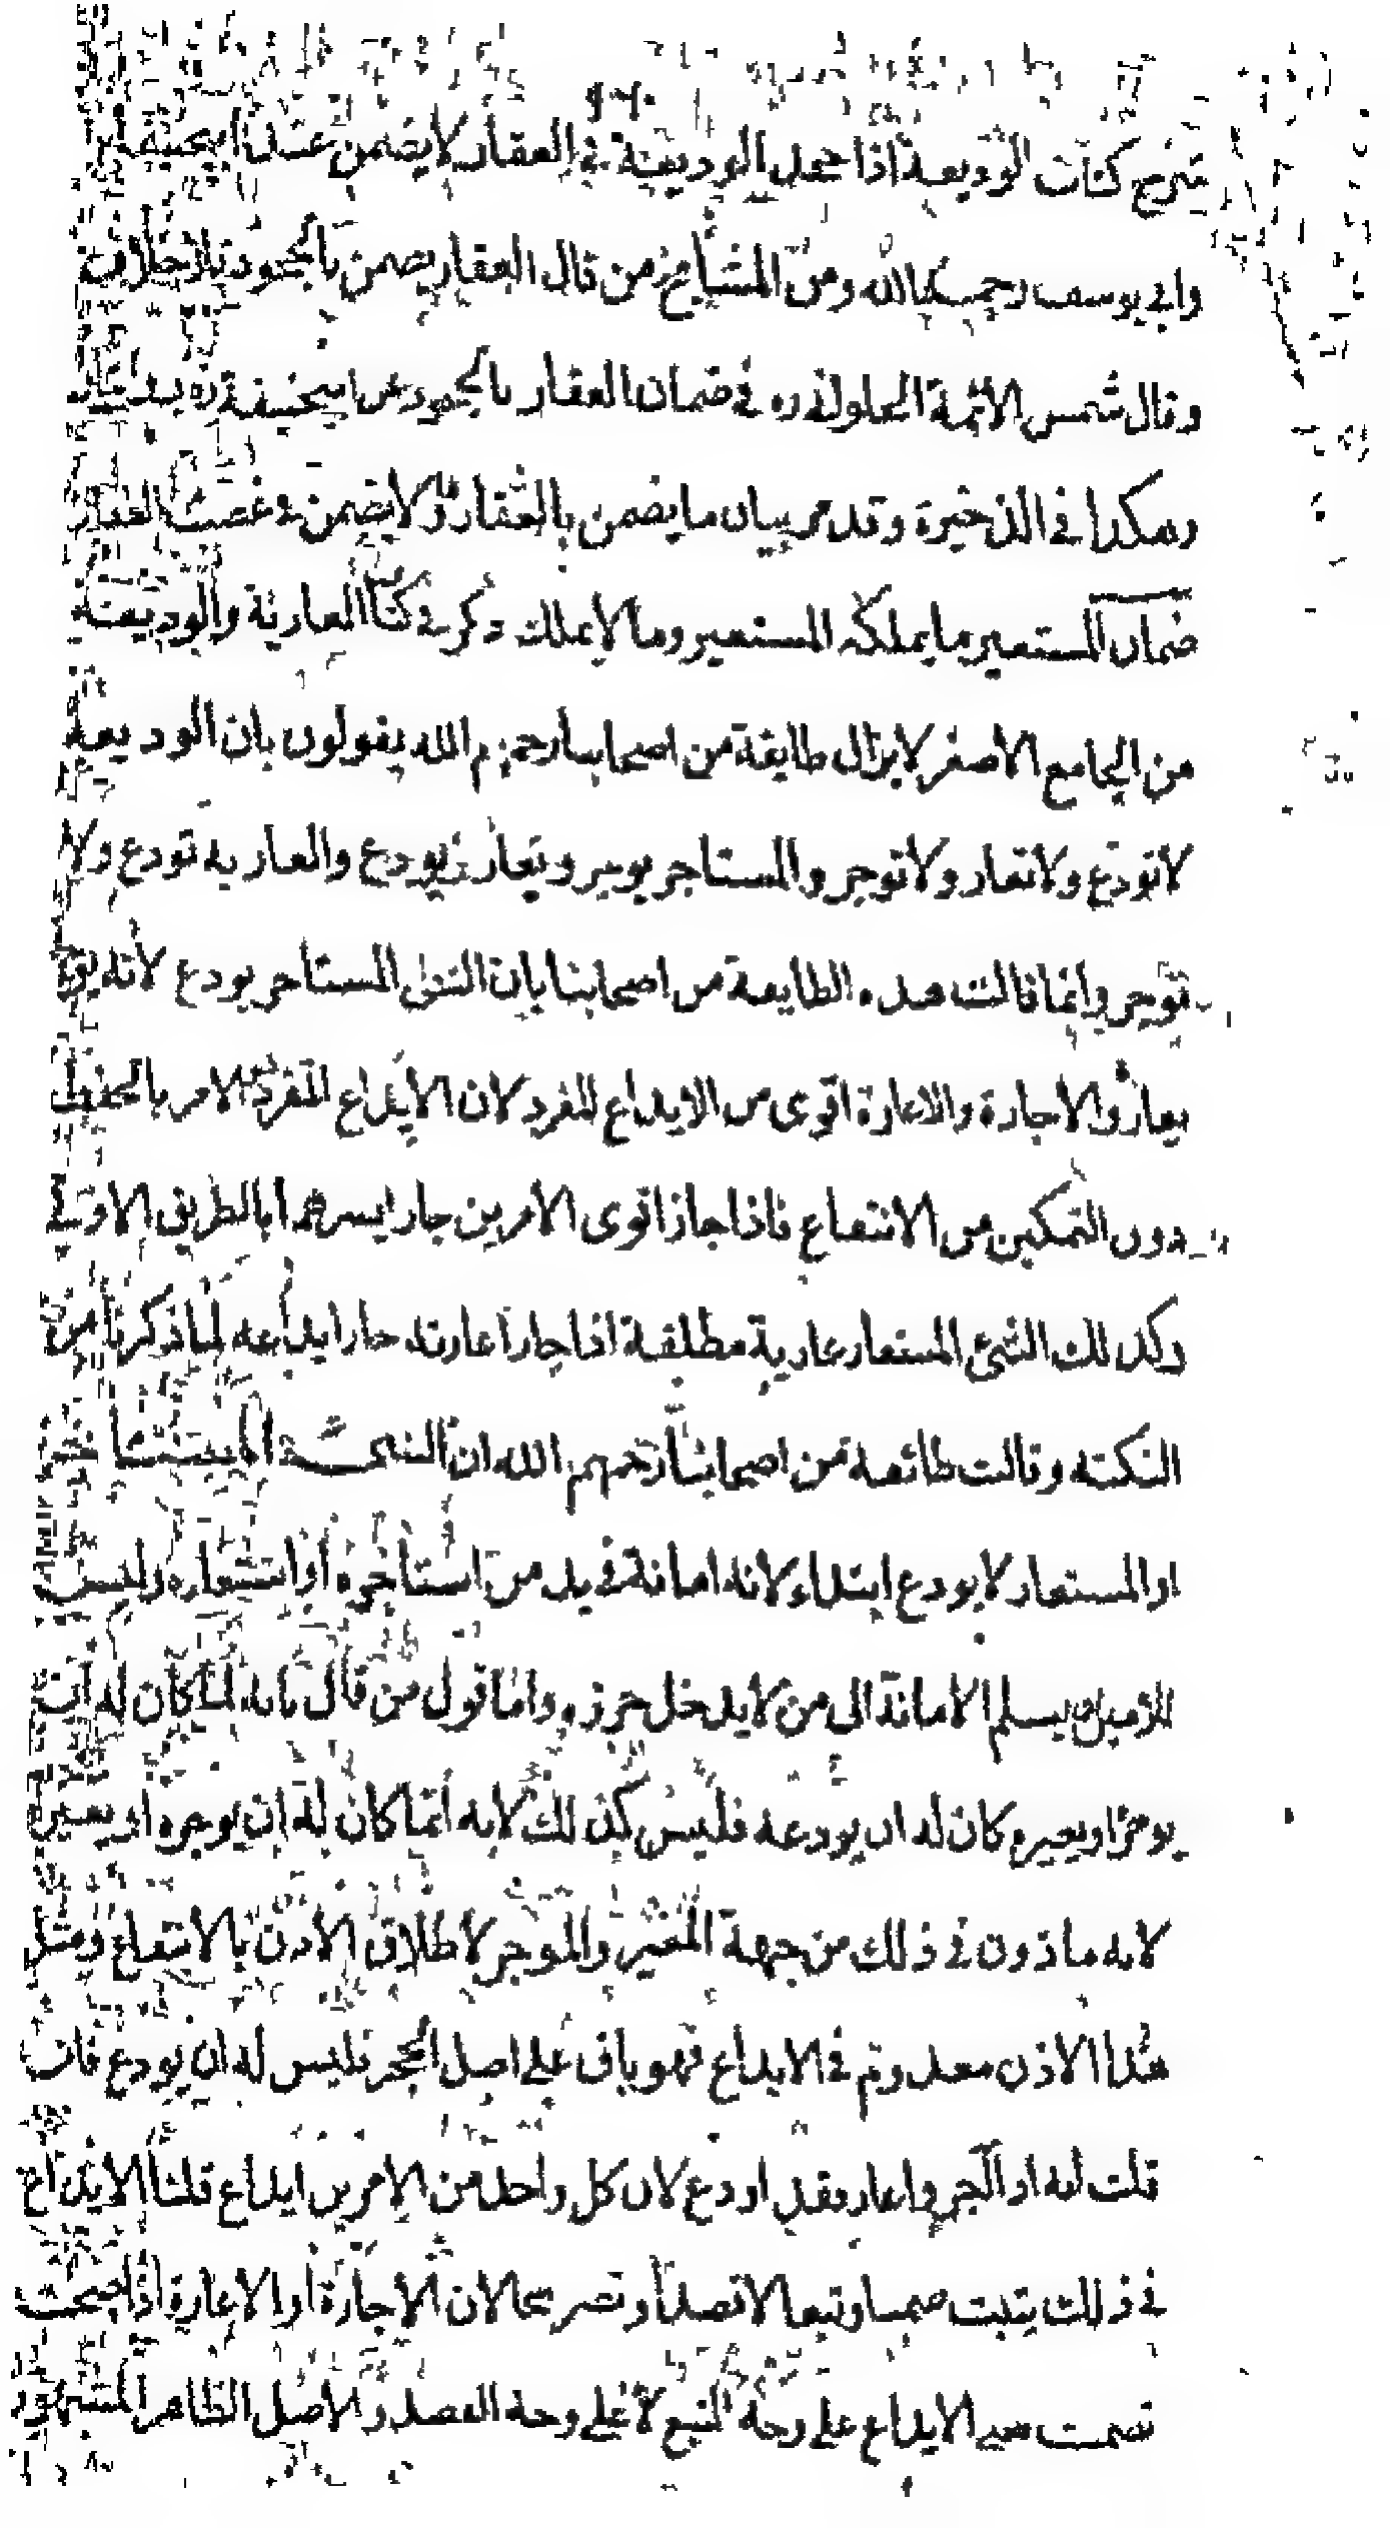 شرح كتاب الوديعة اذا جحد الوديعة في العقار لا يضمن عند ابيحنيفة
وابي يوسف رحمهما الله ومن المشايخ من قال العقار يضمن بالجحود بلا خلاف
وقال شمس الائمة الحلواني ره في ضمان العقار بالجحود عن ابيحنيفة ره
وهكذا في الذخيرة وقد مر بيان ما يضمن بالعقار ولا يضمن في غصب العقار
ضمان المستعير ما يملكه المستعير وما لا يملك ذكر في كتاب العارية والوديعة
من الجامع الاصغر لا يزال طايفة من اصحابنا رحمهم الله يقولون بان الوديعة
لا تودع ولا تعار ولا توجر والمستاجر يوجر ويعار ويودع والعارية تودع ولا
توجر وانما قالت هذه الطايفة من اصحابنا بان الشئ المستاجر يودع لانه يوجر
يعار والاجارة والاعارة اقوى من الايداع المفرد لان الايداع المفرد الامر بالحفظ
دون التمكين من الانتفاع فاذا جاز اقوى الامرين جاز ايسرهما بالطريق الاولى
وكذلك الشئ المستعار عارية مطلقة اذا جاز اعارته جاز ايداعه لما ذكرنا من
النكتة وقالت طائفة من اصحابنا رحمهم الله ان الشئ
او المستعار لا يودع ابتداء لانه امانة في يد من استاجره او استعاره وليس
للامين ان يسلم الامانة الى من لا يدخل حرزه واما قول من قال بانه لما كان له ان
يوجر او يعيره كان له ان يودعه فليس كذلك لانه انما كان له ان يوجره او يعيره
لانه ماذون في ذلك من جهة المعير والموجر لاطلاق الاذن بالانتفاع ومثل
هذا الاذن معدوم في الايداع فهو باق على اصل الحجر فليس له ان يودع فان
قلت انه اذا آجر واعار فقد اودع لان كل واحد من الامرين ايداع قلنا الايداع
في ذلك يثبت ضمنا وتبعا لا قصدا وتصريحا لان الاجارة او الاعارة اذا صحت
تضمنت معنى الايداع على وجه التبع لا على وجه القصد والاصل الظاهر المشهور